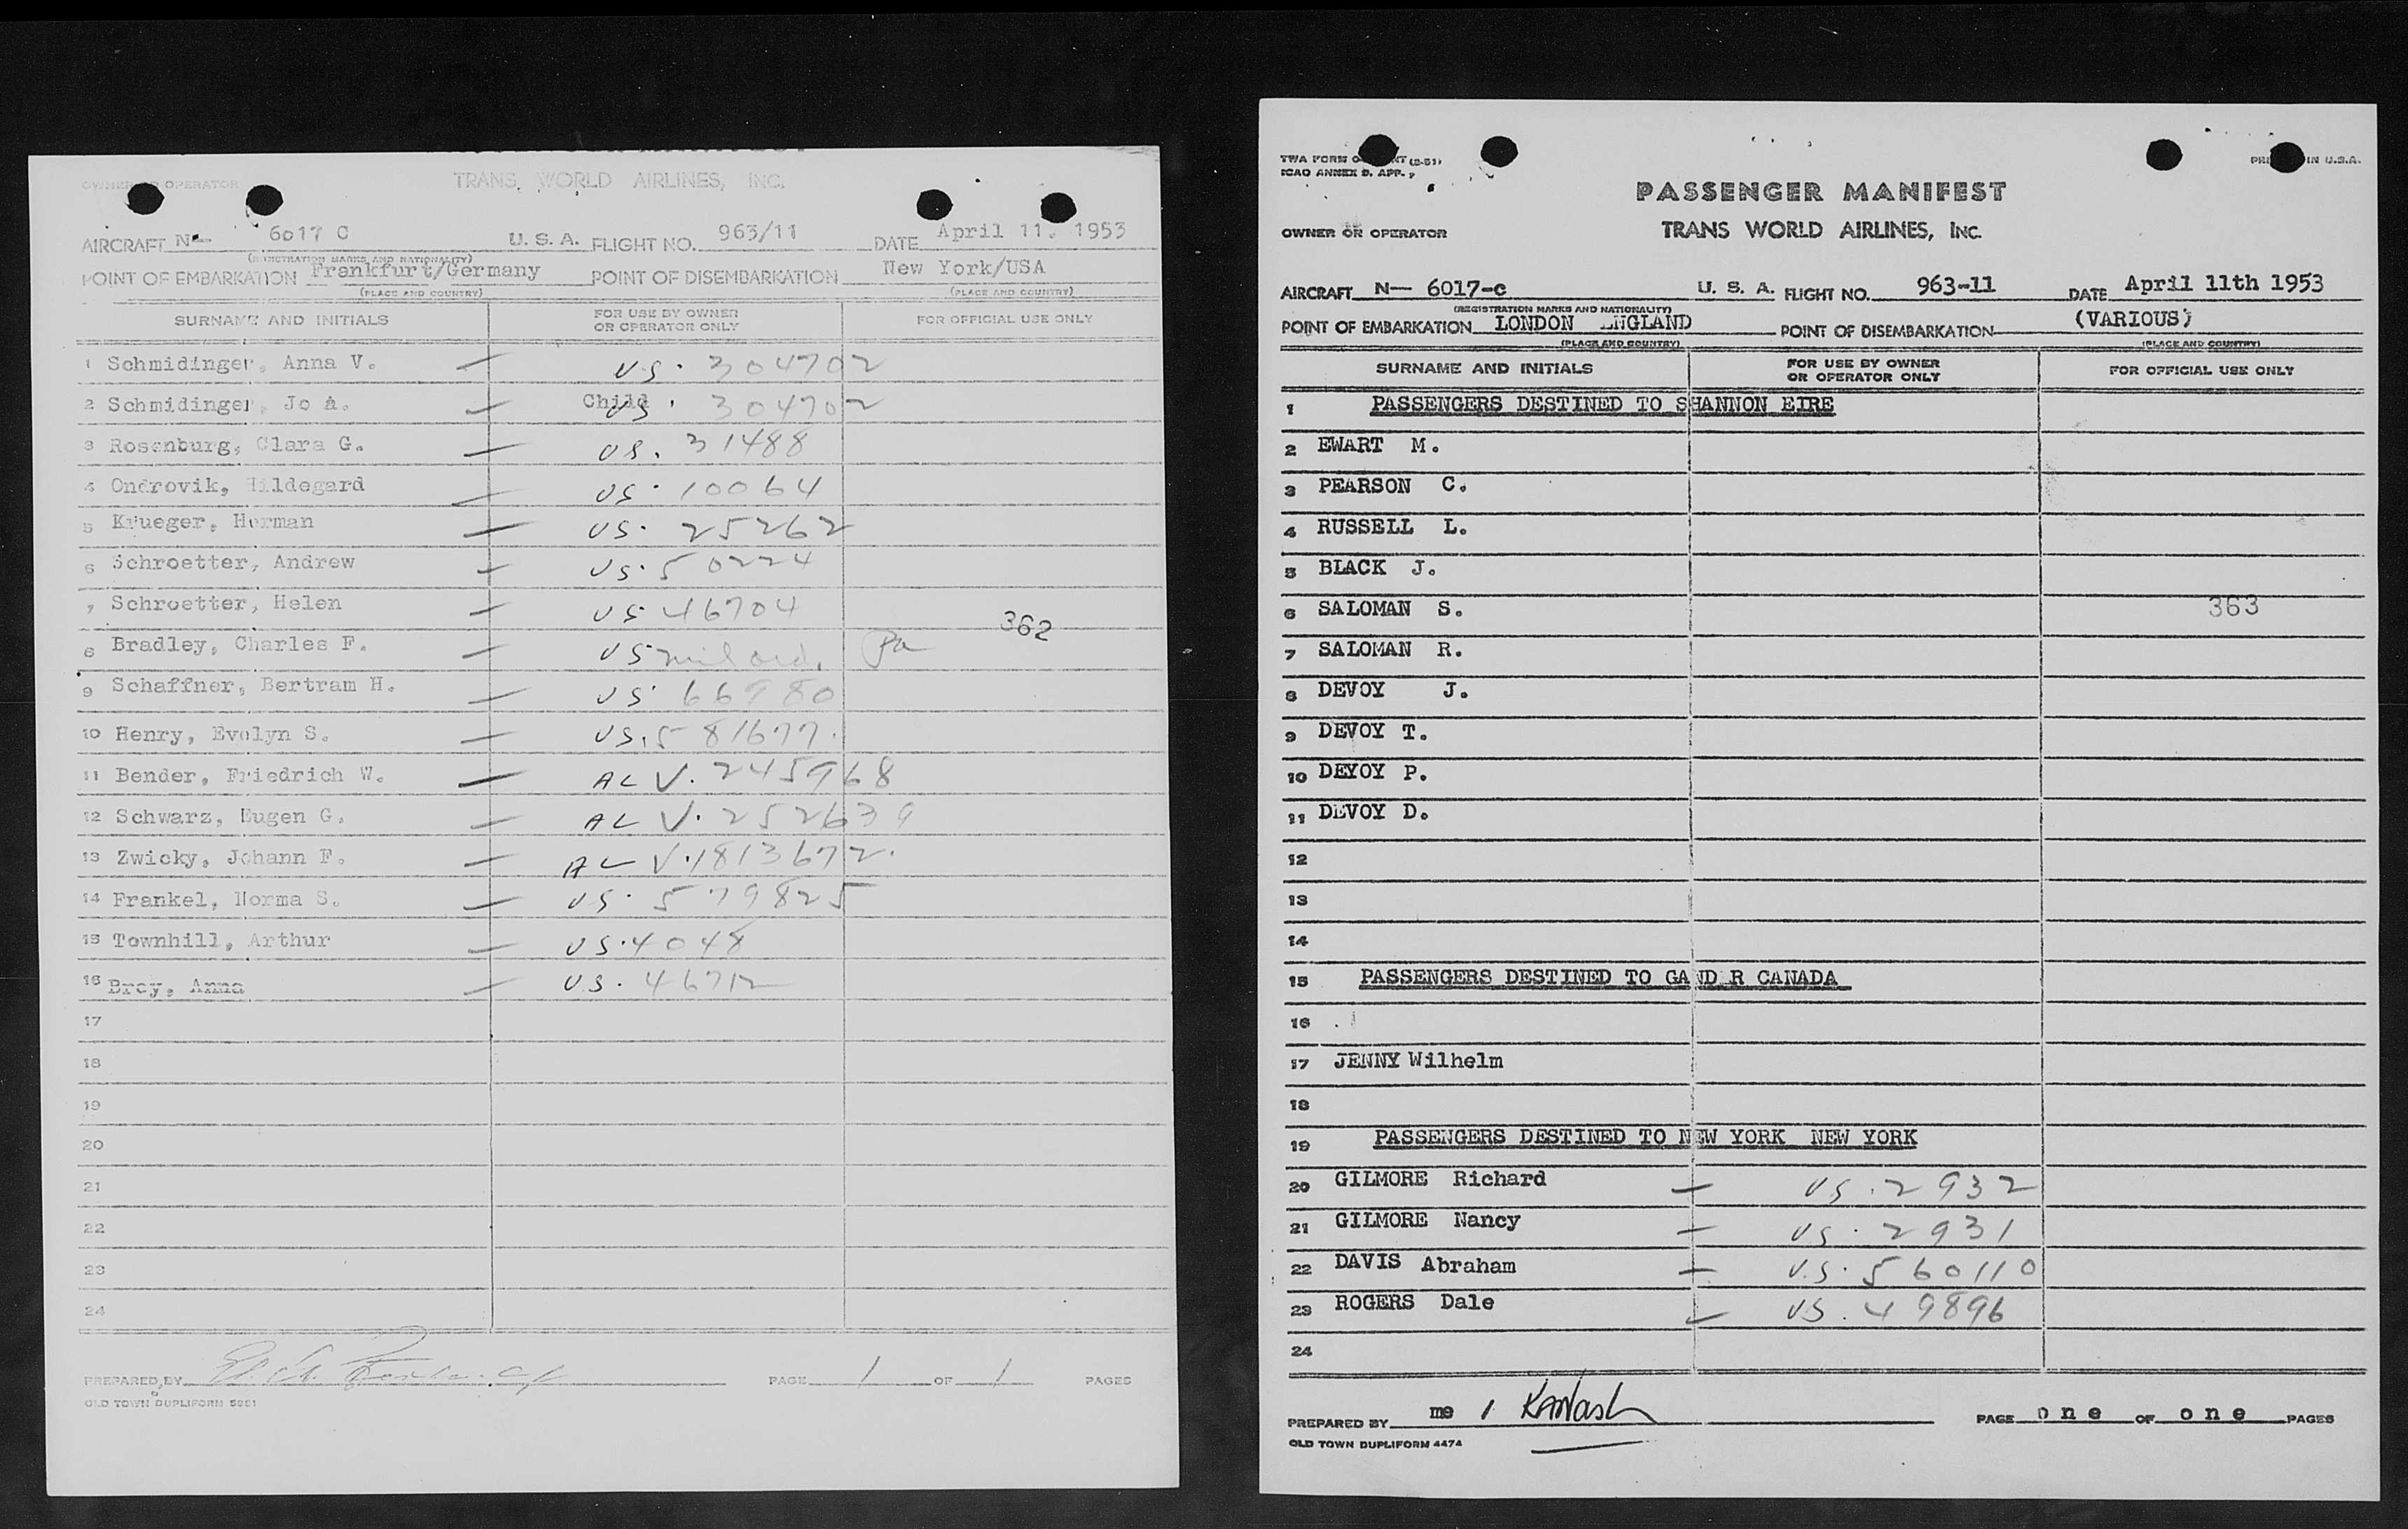 OWNER OR OPERATOR TRANS WORLD AIRLINES, INC.
AIRCRAFT N— 6017 C U. S. A. FLIGHT NO. 963/11 DATE April 11. 1953
(REGISTRATION MARKS AND NATIONALITY)
POINT OF EMBARKATION Frankfurt/Germany POINT OF DISEMBARKATION New York/USA
(PLACE AND COUNTRY) (PLACE AND COUNTRY)
SURNAME AND INITIALS FOR USE BY OWNER OR OPERATOR ONLY FOR OFFICIAL USE ONLY
1 Schmidinger, Anna V. — US. 304702
2 Schmidinger, Jo A. — Child US. 304702
3 Rosenburg, Clara G. — US. 31488
4 Ondrovik, Hildegard — US. 10064
5 Krueger, Herman — US. 25262
6 Schroetter, Andrew — US. 50224
7 Schroetter, Helen — US 46704
362
8 Bradley, Charles F. — US mil ord. Pa
9 Schaffner, Bertram H. — US. 66980
10 Henry, Evelyn S. — US. 581677.
11 Bender, Friedrich W. — AL V. 245968
12 Schwarz, Eugen G. — AL V. 252639
13 Zwicky, Johann F. — AL V. 1813672.
14 Frankel, Norma S. — US. 579825
15 Townhill, Arthur — US. 4048
16 Brey, Anna — US. 46712
17
18
19
20
21
22
23
24
PREPARED BY PAGE 1 OF 1 PAGES
OLD TOWN DUPLIFORM 5051
TWA FORM (2-51) IN U.S.A.
ICAO ANNEX 9. APP.
PASSENGER MANIFEST
OWNER OR OPERATOR TRANS WORLD AIRLINES, INC.
AIRCRAFT N— 6017-c U. S. A. FLIGHT NO. 963-11 DATE April 11th 1953
(REGISTRATION MARKS AND NATIONALITY)
POINT OF EMBARKATION LONDON ENGLAND POINT OF DISEMBARKATION (VARIOUS)
(PLACE AND COUNTRY) (PLACE AND COUNTRY)
SURNAME AND INITIALS FOR USE BY OWNER OR OPERATOR ONLY FOR OFFICIAL USE ONLY
1 PASSENGERS DESTINED TO SHANNON EIRE
2 EWART M.
3 PEARSON C.
4 RUSSELL L.
5 BLACK J.
6 SALOMAN S. 363
7 SALOMAN R.
8 DEVOY J.
9 DEVOY T.
10 DEVOY P.
11 DEVOY D.
12
13
14
15 PASSENGERS DESTINED TO GAND R CANADA
16
17 JENNY Wilhelm
18
19 PASSENGERS DESTINED TO NEW YORK NEW YORK
20 GILMORE Richard — US. 2932
21 GILMORE Nancy — US. 2931
22 DAVIS Abraham — U.S. 560110
23 ROGERS Dale — US. 49896
24
PREPARED BY me / PAGE one OF one PAGES
OLD TOWN DUPLIFORM 4474